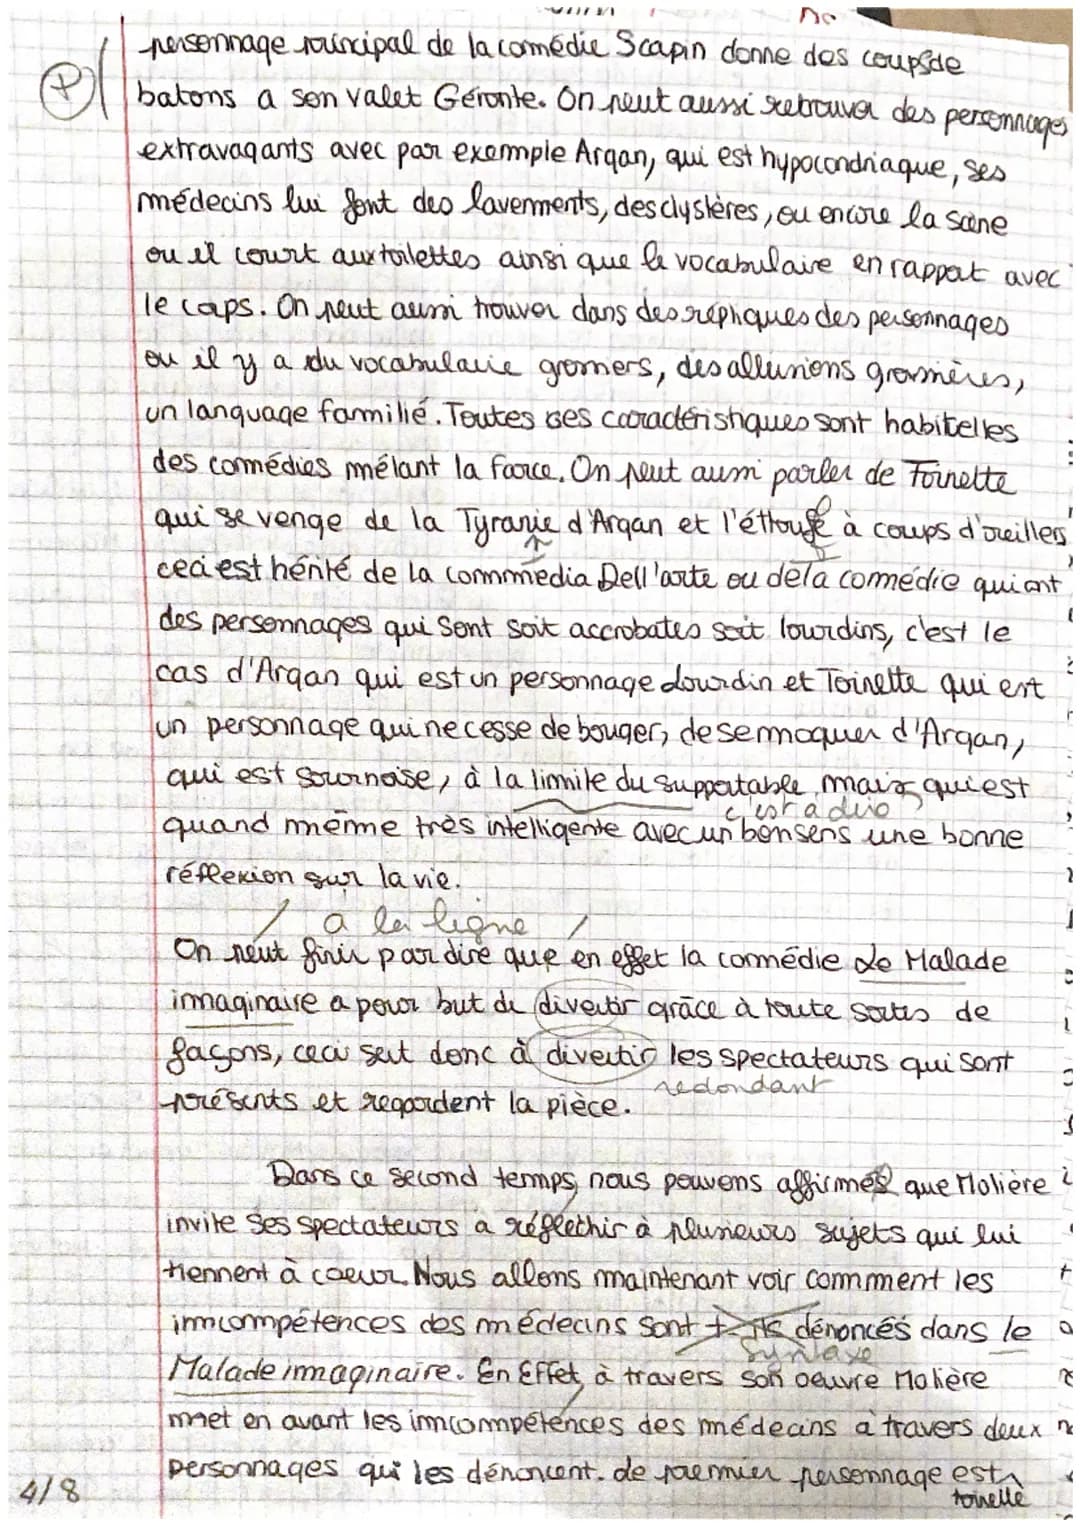 personnage principal de la comédie Scapin donne des coups de
batons a son valet Géronte. On peut aussi retrouver des personnages
extravagants avec par exemple Argan, qui est hypocondriaque, ses
médecins lui font des lavements, des clystères, ou encore la scène
ou il court aux toilettes ainsi que le vocabulaire en rapport avec
le corps. On peut aussi trouver dans des répliques des personnages
ou il y a du vocabulaire grossiers, des allusions grossières,
un language familié. Toutes ces caractéristiques sont habituelles
des comédies mélant la farce. On peut aussi parler de Toinette
qui se venge de la Tyranie d'Argan et l'éttouffe à coups d'oreillers
ceci est hérité de la commmedia Dell'arte ou de la comédie qui ont
des personnages qui sont soit accrobates soit lourdins, c'est le
cas d'Argan qui est un personnage lourdin et Toinette qui est
un personnage qui ne cesse de bouger, de se moquer d'Argan,
qui est sournoise, à la limite du supportable mais qui est
c'est à dire ?
quand même très intelligente avec un bon sens une bonne
réflexion sur la vie.
/ à la ligne /
On peut finir par dire que en effet la comédie Le Malade
imaginaire a pour but de divertir grâce à toute sortes de
façons, ceci sert donc à divertir les spectateurs qui sont
redondant
présents et regardent la pièce.
Dans ce second temps, nous pouvons affirmer que Molière
invite ses spectateurs a réflechir à plusieurs sujets qui lui
tiennent à coeur. Nous allons maintenant voir comment les
imcompétences des médecins sont t-ils dénoncés dans le
syntaxe
Malade imaginaire. En Effet, à travers son oeuvre Molière
met en avant les imcompétences des médecins à travers deux
personnages qui les dénoncent. de premier personnage est
toinette
4/8